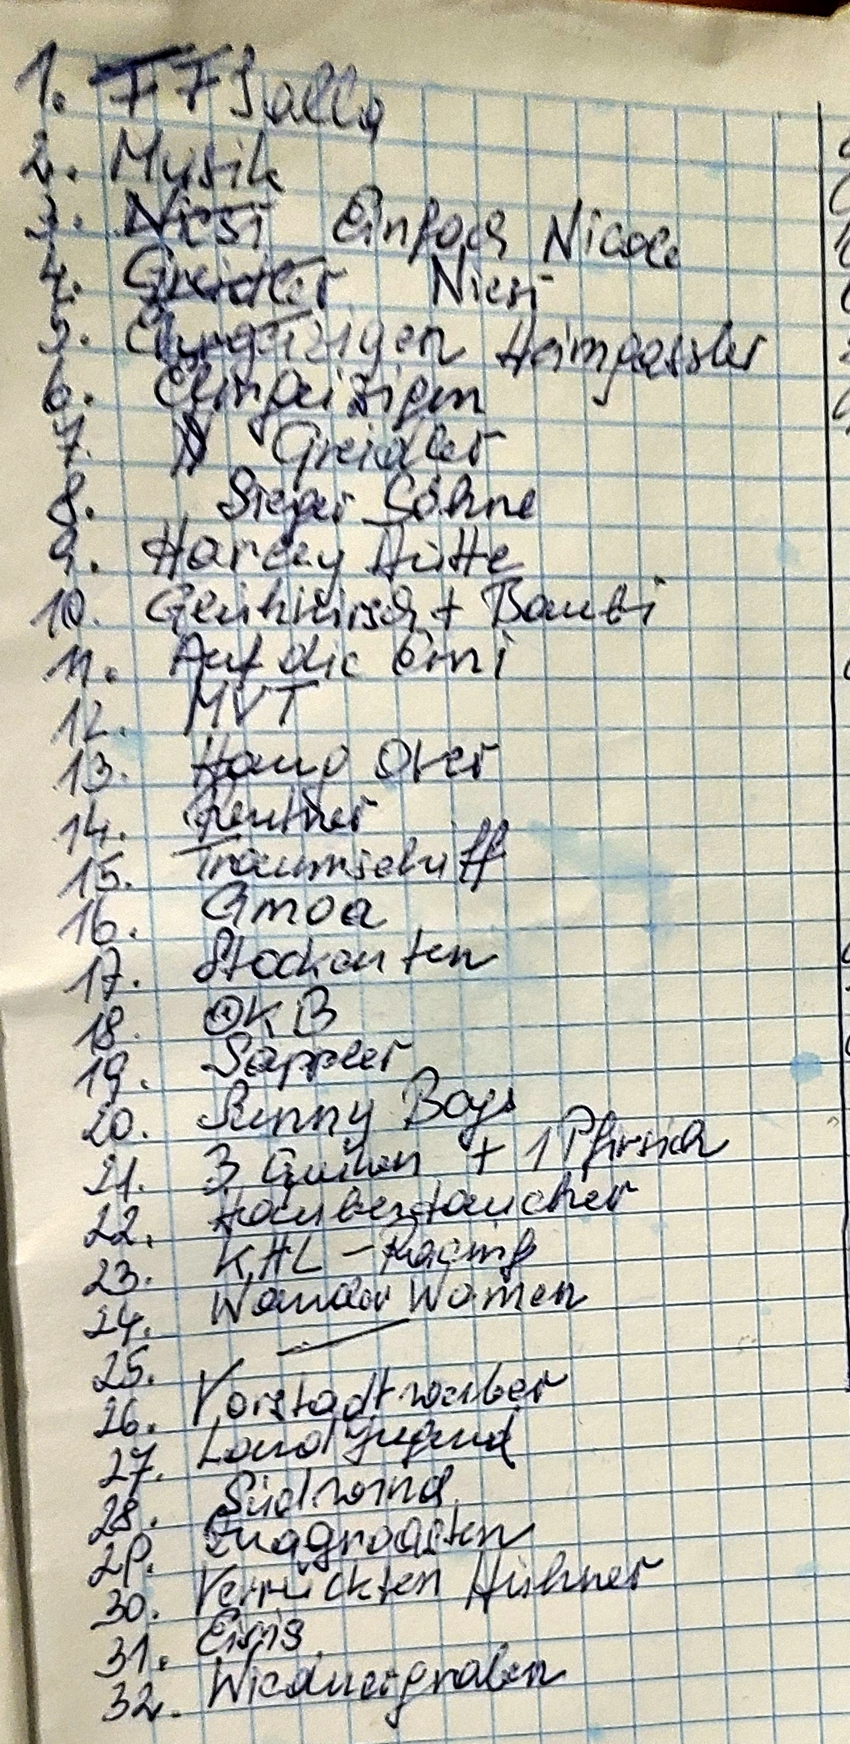 1. FF Salla
2. Musik
3. Niesi Einfach Nicole
4. Greidler Niesi
5. Ehrgeizigen Heimgassler
6. Ehrgeizigen
7. Greidler
8. Steger Söhne
9. Harley Hütte
10. Glühhirsch + Bambi
11. Auf die Emi
12. MVT
13. Hang Over
14.
15. Traumschiff
16. Gmoa
17. Stockenten
18. ÖKB
19. Sappler
20. Sunny Boys
21. 3 Gurken + 1 Pfirsich
22. Haubentaucher
23. KHL - Racing
24. Wonder Women
25. —
26. Vorstadtweiber
27. Landjugend
28. Südwind
29. Zuagroasten
30. Verrückten Hühner
31. Eisis
32.